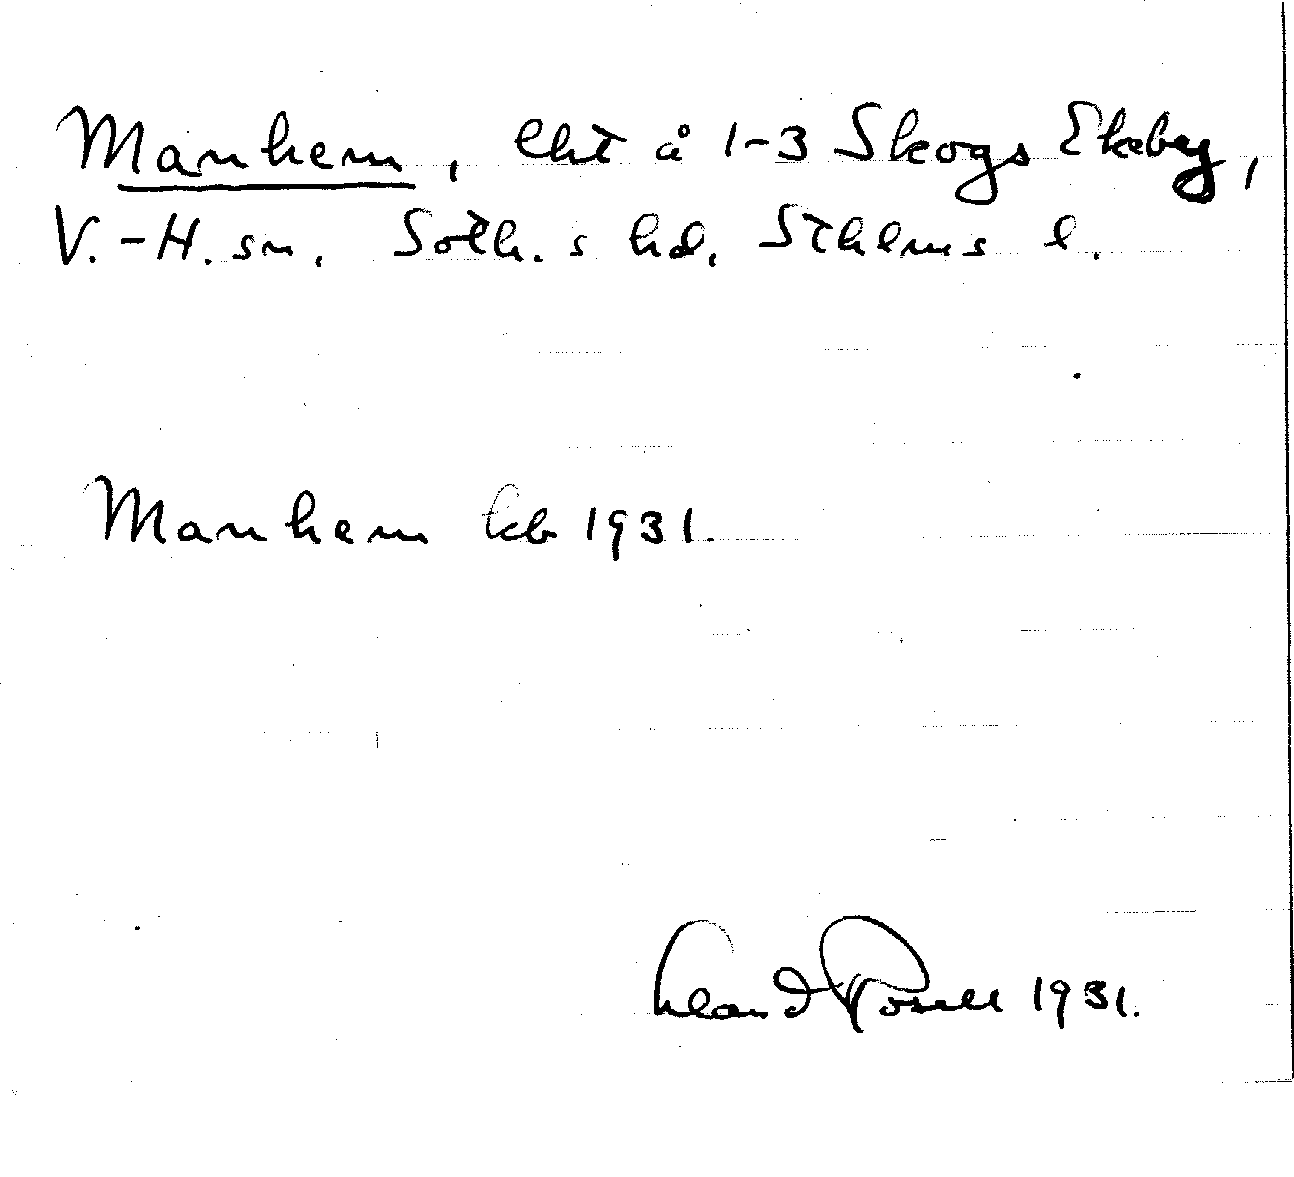 Manhem, lht å 1-3 Skogs Ekeby,
V.-H. sn. Soth. s hd, Sthlms l.
Manhem kb 1931.
1931.